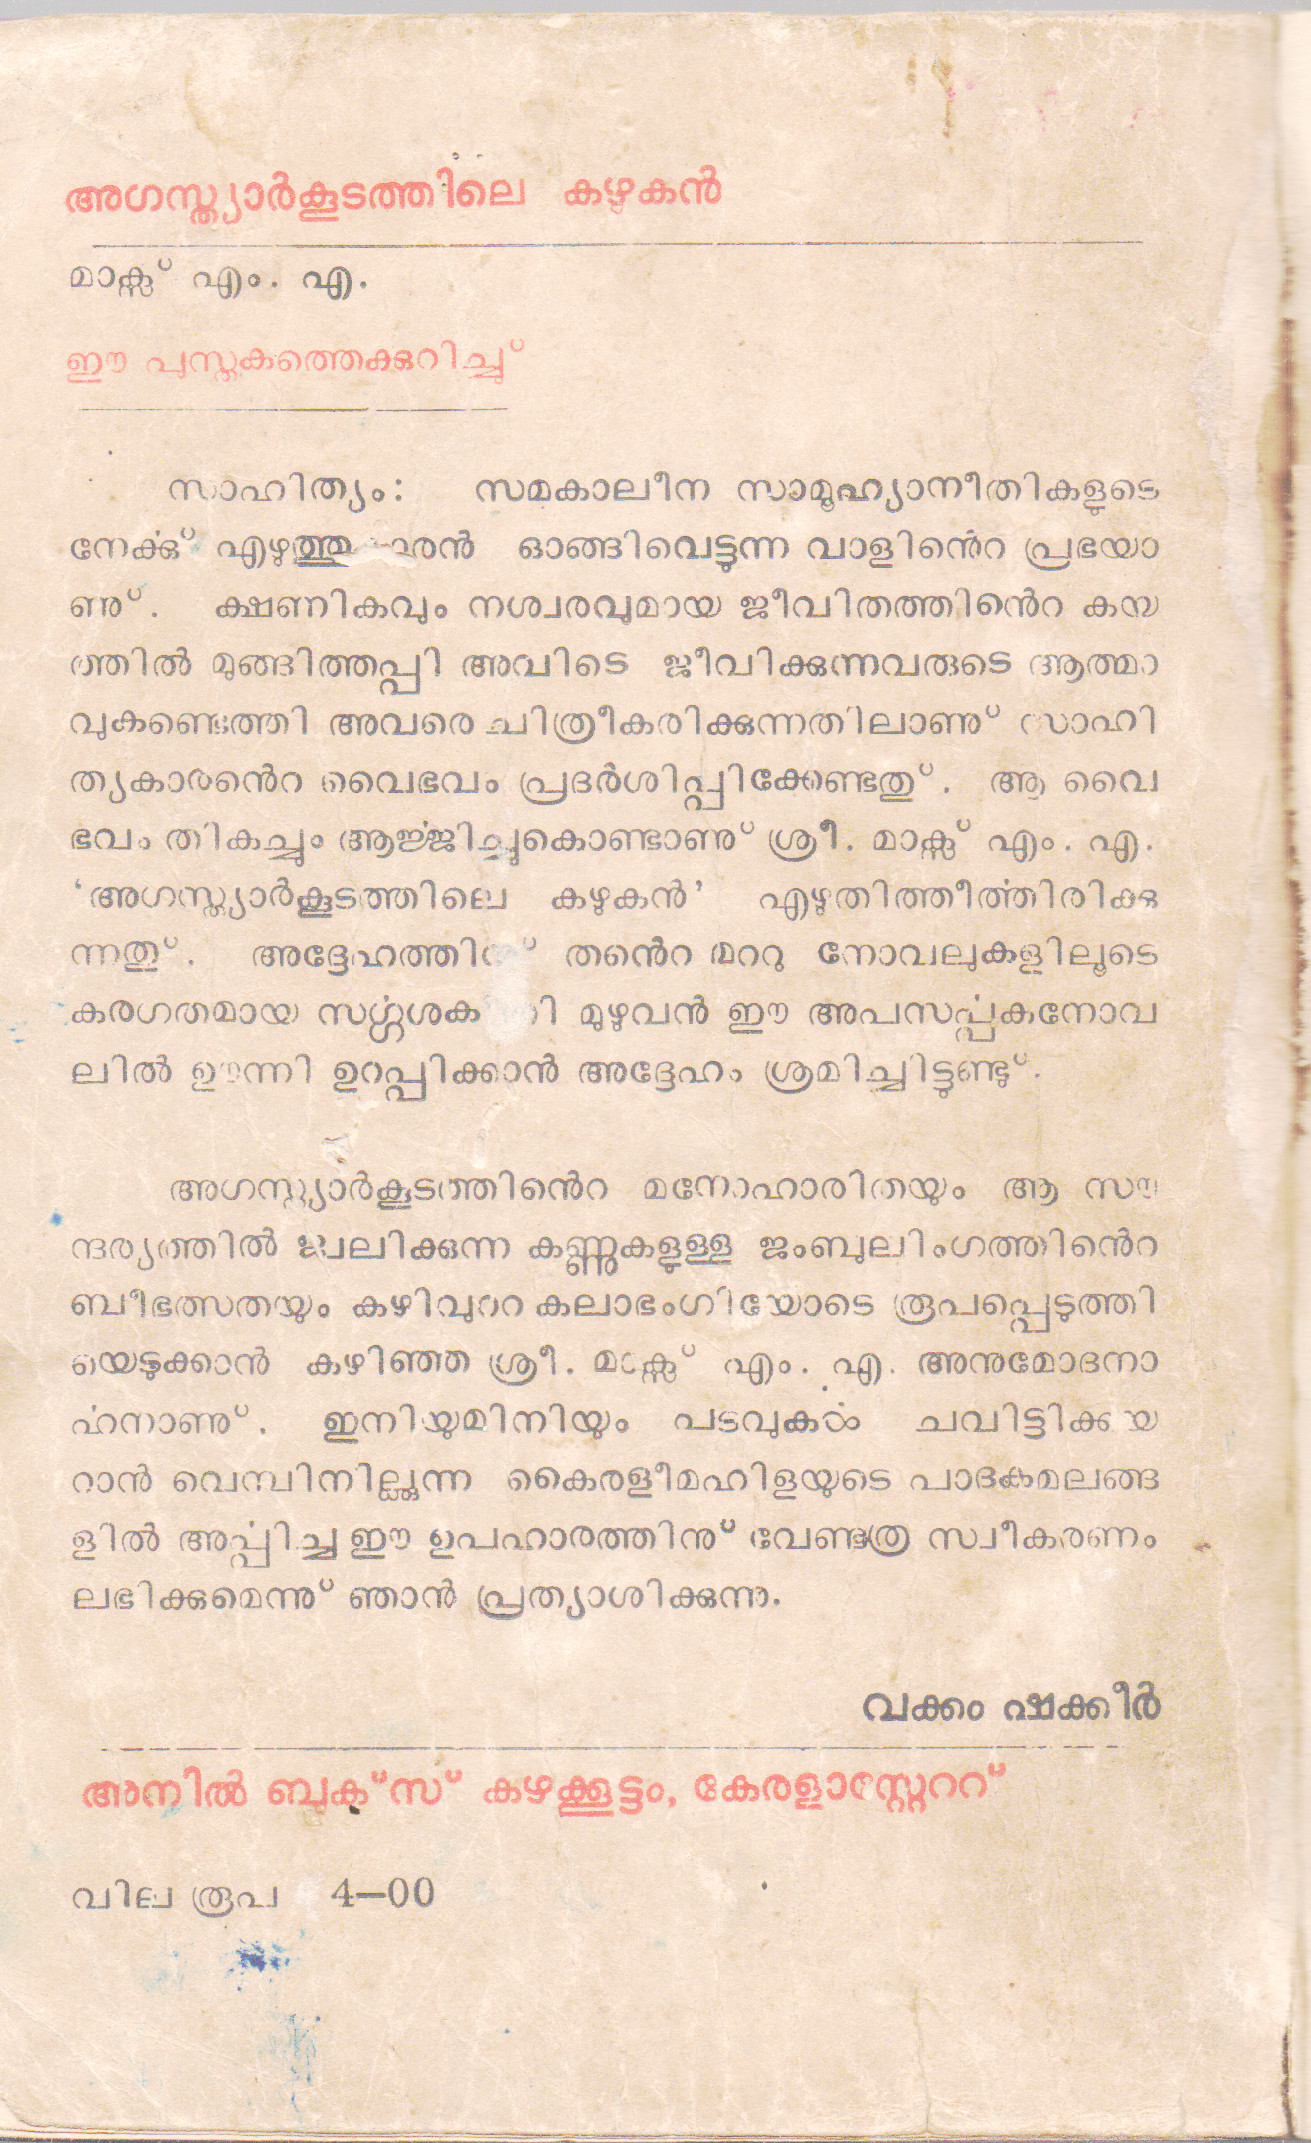 അഗസ്ത്യാർകൂടത്തിലെ കഴുകൻ
മാക്സ് എം. എ.
ഈ പുസ്തകത്തെക്കുറിച്ചു്
സാഹിത്യം: സമകാലീന സാമൂഹ്യാനീതികളുടെ
നേൎക്കു് എഴുത്തുകാരൻ ഓങ്ങിവെട്ടുന്ന വാളിൻെറ പ്രഭയാ
ണു്. ക്ഷണികവും നശ്വരവുമായ ജീവിതത്തിൻെറ കയ
ത്തിൽ മുങ്ങിത്തപ്പി അവിടെ ജീവിക്കുന്നവരുടെ ആത്മാ
വുകണ്ടെത്തി അവരെ ചിത്രീകരിക്കുന്നതിലാണു് സാഹി
ത്യകാരൻെറ വൈഭവം പ്രദർശിപ്പിക്കേണ്ടതു്. ആ വൈ
ഭവം തികച്ചും ആൎജ്ജിച്ചുകൊണ്ടാണു് ശ്രീ. മാക്സ് എം. എ.
‘അഗസ്ത്യാർകൂടത്തിലെ കഴുകൻ’ എഴുതിത്തീൎത്തിരിക്കു
ന്നതു്. അദ്ദേഹത്തിനു് തൻെറ മററു നോവലുകളിലൂടെ
കരഗതമായ സൎഗ്ഗശക്തി മുഴുവൻ ഈ അപസൎപ്പകനോവ
ലിൽ ഊന്നി ഉറപ്പിക്കാൻ അദ്ദേഹം ശ്രമിച്ചിട്ടുണ്ടു്.
അഗസ്ത്യാർകൂടത്തിൻെറ മനോഹാരിതയും ആ സൗ
ന്ദര്യത്തിൽ ജ്വലിക്കുന്ന കണ്ണുകളുള്ള ജംബുലിംഗത്തിൻെറ
ബീഭത്സതയും കഴിവുററ കലാഭംഗിയോടെ രൂപപ്പെടുത്തി
യെടുക്കാൻ കഴിഞ്ഞ ശ്രീ. മാക്സ് എം. എ. അനുമോദനാ
ൎഹനാണു്. ഇനിയുമിനിയും പടവുകൾ ചവിട്ടിക്കയ
റാൻ വെമ്പിനില്ക്കുന്ന കൈരളീമഹിളയുടെ പാദകമലങ്ങ
ളിൽ അൎപ്പിച്ച ഈ ഉപഹാരത്തിനു് വേണ്ടത്ര സ്വീകരണം
ലഭിക്കുമെന്നു് ഞാൻ പ്രത്യാശിക്കുന്നു.
വക്കം ഷക്കീർ
അനിൽ ബുക്സ് കഴക്കൂട്ടം, കേരളാസ്റ്റേററ്
വില രൂപ 4—00